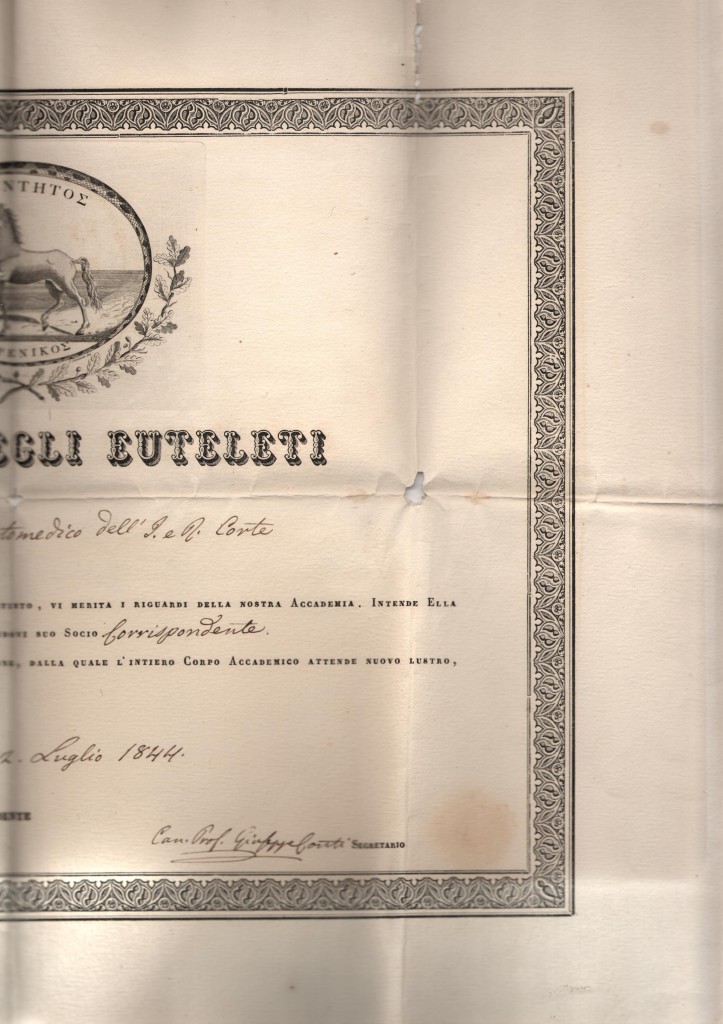 ΝΤΗΤΟΣ
ΡΕΝΙΚΟΣ
EGLI EUTELETI
tomedico dell' I. e R. Corte
MENTO, VI MERITA I RIGUARDI DELLA NOSTRA ACCADEMIA. INTENDE ELLA
NDOVI SUO SOCIO Corrispondente.
DALLA QUALE L'INTIERO CORPO ACCADEMICO ATTENDE NUOVO LUSTRO,
2. Luglio 1844.
DENTE
Can. Prof. Giuseppe Conti SEGRETARIO